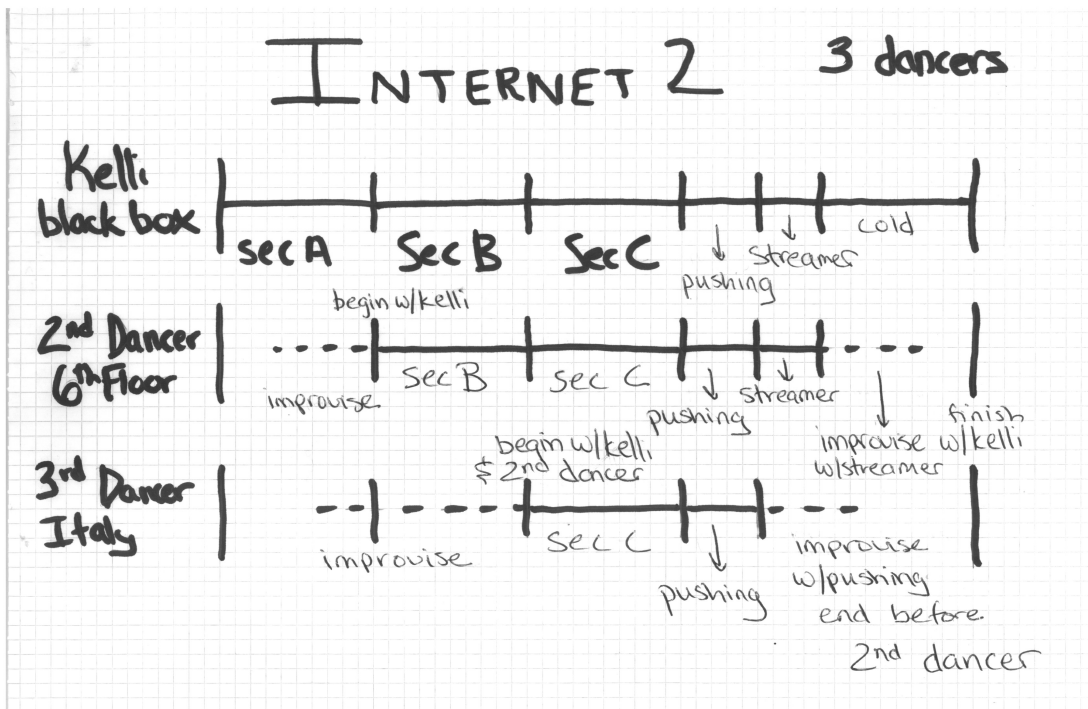 INTERNET 2
3 dancers
Kelli
black box
sec A
Sec B
Sec C
pushing
streamer
cold
2nd Dancer
6th Floor
improvise
begin w/kelli
Sec B
Sec C
pushing
streamer
improvise w/kelli
w/streamer
finish
3rd Dancer
Italy
improvise
begin w/kelli
& 2nd dancer
Sec C
pushing
improvise
w/pushing
end before
2nd dancer